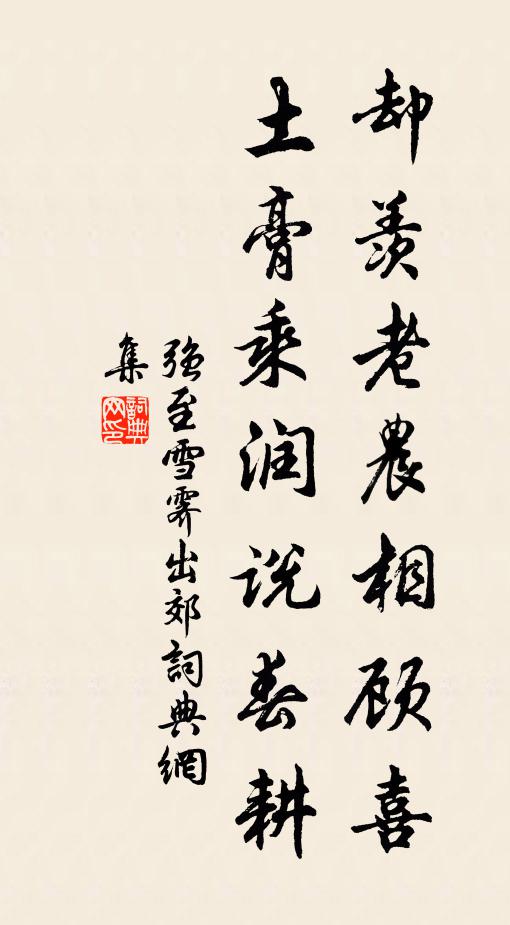 却羡老農相顾喜
土膏乘润説春耕
强至雪霁出郊詞典網
集
詞典
网印